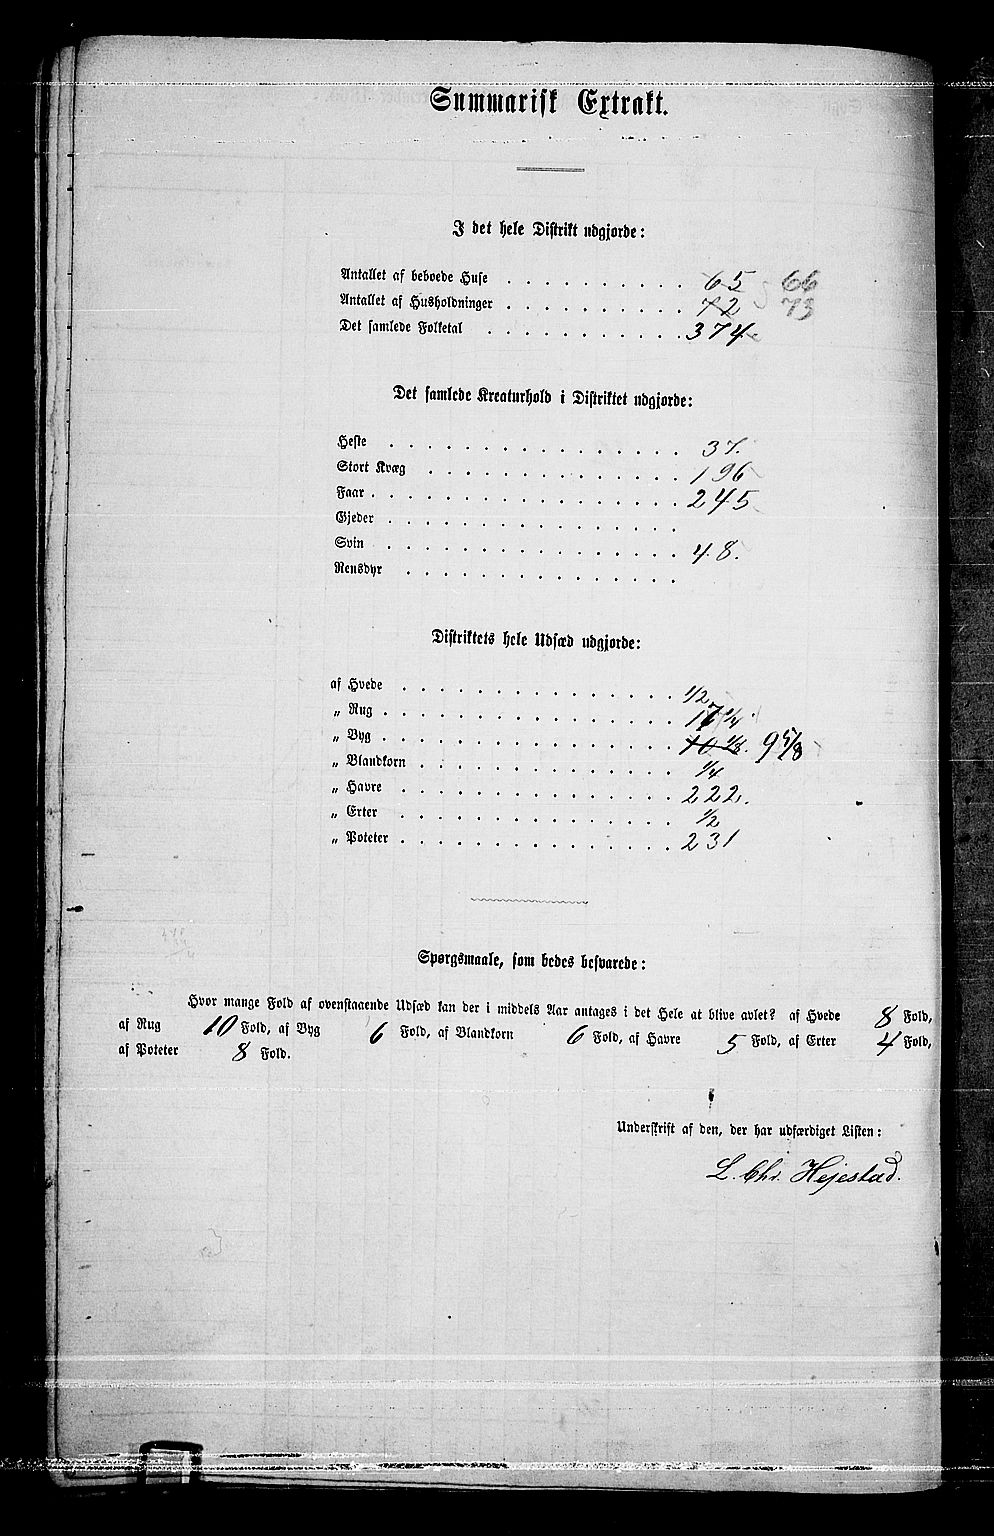 Summarisk Extrakt.
I det hele Distrikt udgjorde:
Antallet af beboede Huse . . . . . . . . . . 65 66
Antallet af Husholdninger . . . . . . . . . . 72 73
Det samlede Folketal . . . . . . . . . . 374
Det samlede Kreaturhold i Distriktet udgjorde:
Heste . . . . . . . . . . . . . 37.
Stort Kvæg . . . . . . . . . . . 196
Faar . . . . . . . . . . . . . 245
Gjeder . . . . . . . . . . . . .
Svin . . . . . . . . . . . . . 48.
Rensdyr . . . . . . . . . . . .
Distriktets hele Udsæd udgjorde:
af Hvede . . . . . . . . . . . . 1/2
„ Rug . . . . . . . . . . . . 1/4
„ Byg . . . . . . . . . . . . 10 1/8. 9 5/8
„ Blandkorn . . . . . . . . . . . 1/4
„ Havre . . . . . . . . . . . . 222.
„ Erter . . . . . . . . . . . . 1/2
„ Poteter . . . . . . . . . . . . 231
Spørgsmaale, som bedes besvarede:
Hvor mange Fold af ovenstaaende Udsæd kan der i middels Aar antages i det Hele at blive avlet? af Hvede 8 Fold,
af Rug 10 Fold, af Byg 6 Fold, af Blandkorn 6 Fold, af Havre 5 Fold, af Erter 4 Fold,
af Poteter 8 Fold.
Underskrift af den, der har udfærdiget Listen:
L. Chr. Hejestad.